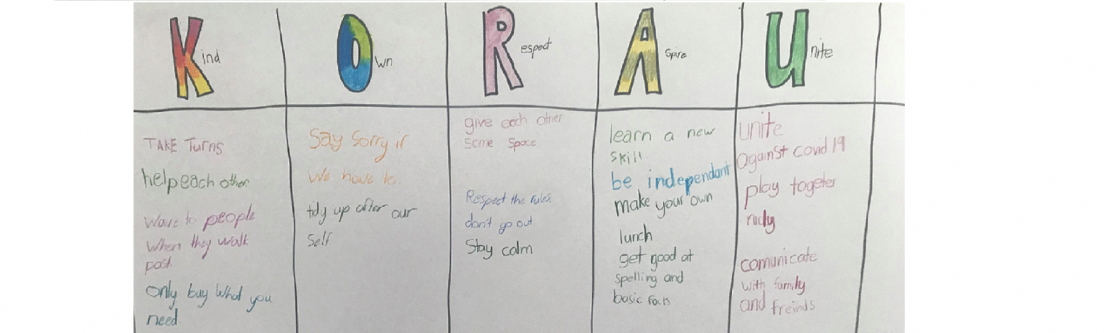 Kind
Own
Respect
Aspire
Unite
TAKE Turns
help each other
Wave to people
when they walk
past
only buy what you
need
Say sorry if
We have to.
tidy up after our
self
give each other
some space
Respect the rules
don't go out
Stay calm
learn a new
skill.
be independant
make your own
lunch
get good at
spelling and
basic facts
Unite
against covid 19
play togeter
comunicate
with family
and freinds